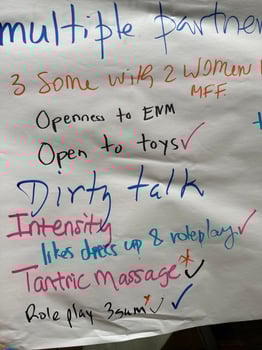 multiple partner
3 Some with 2 women
MFF.
Openness to ENM
Open to toys✓
Dirty talk
Intensity
likes dress up & roleplay✓
Tantric Massage*✓
Role play 3sum*✓ ✓